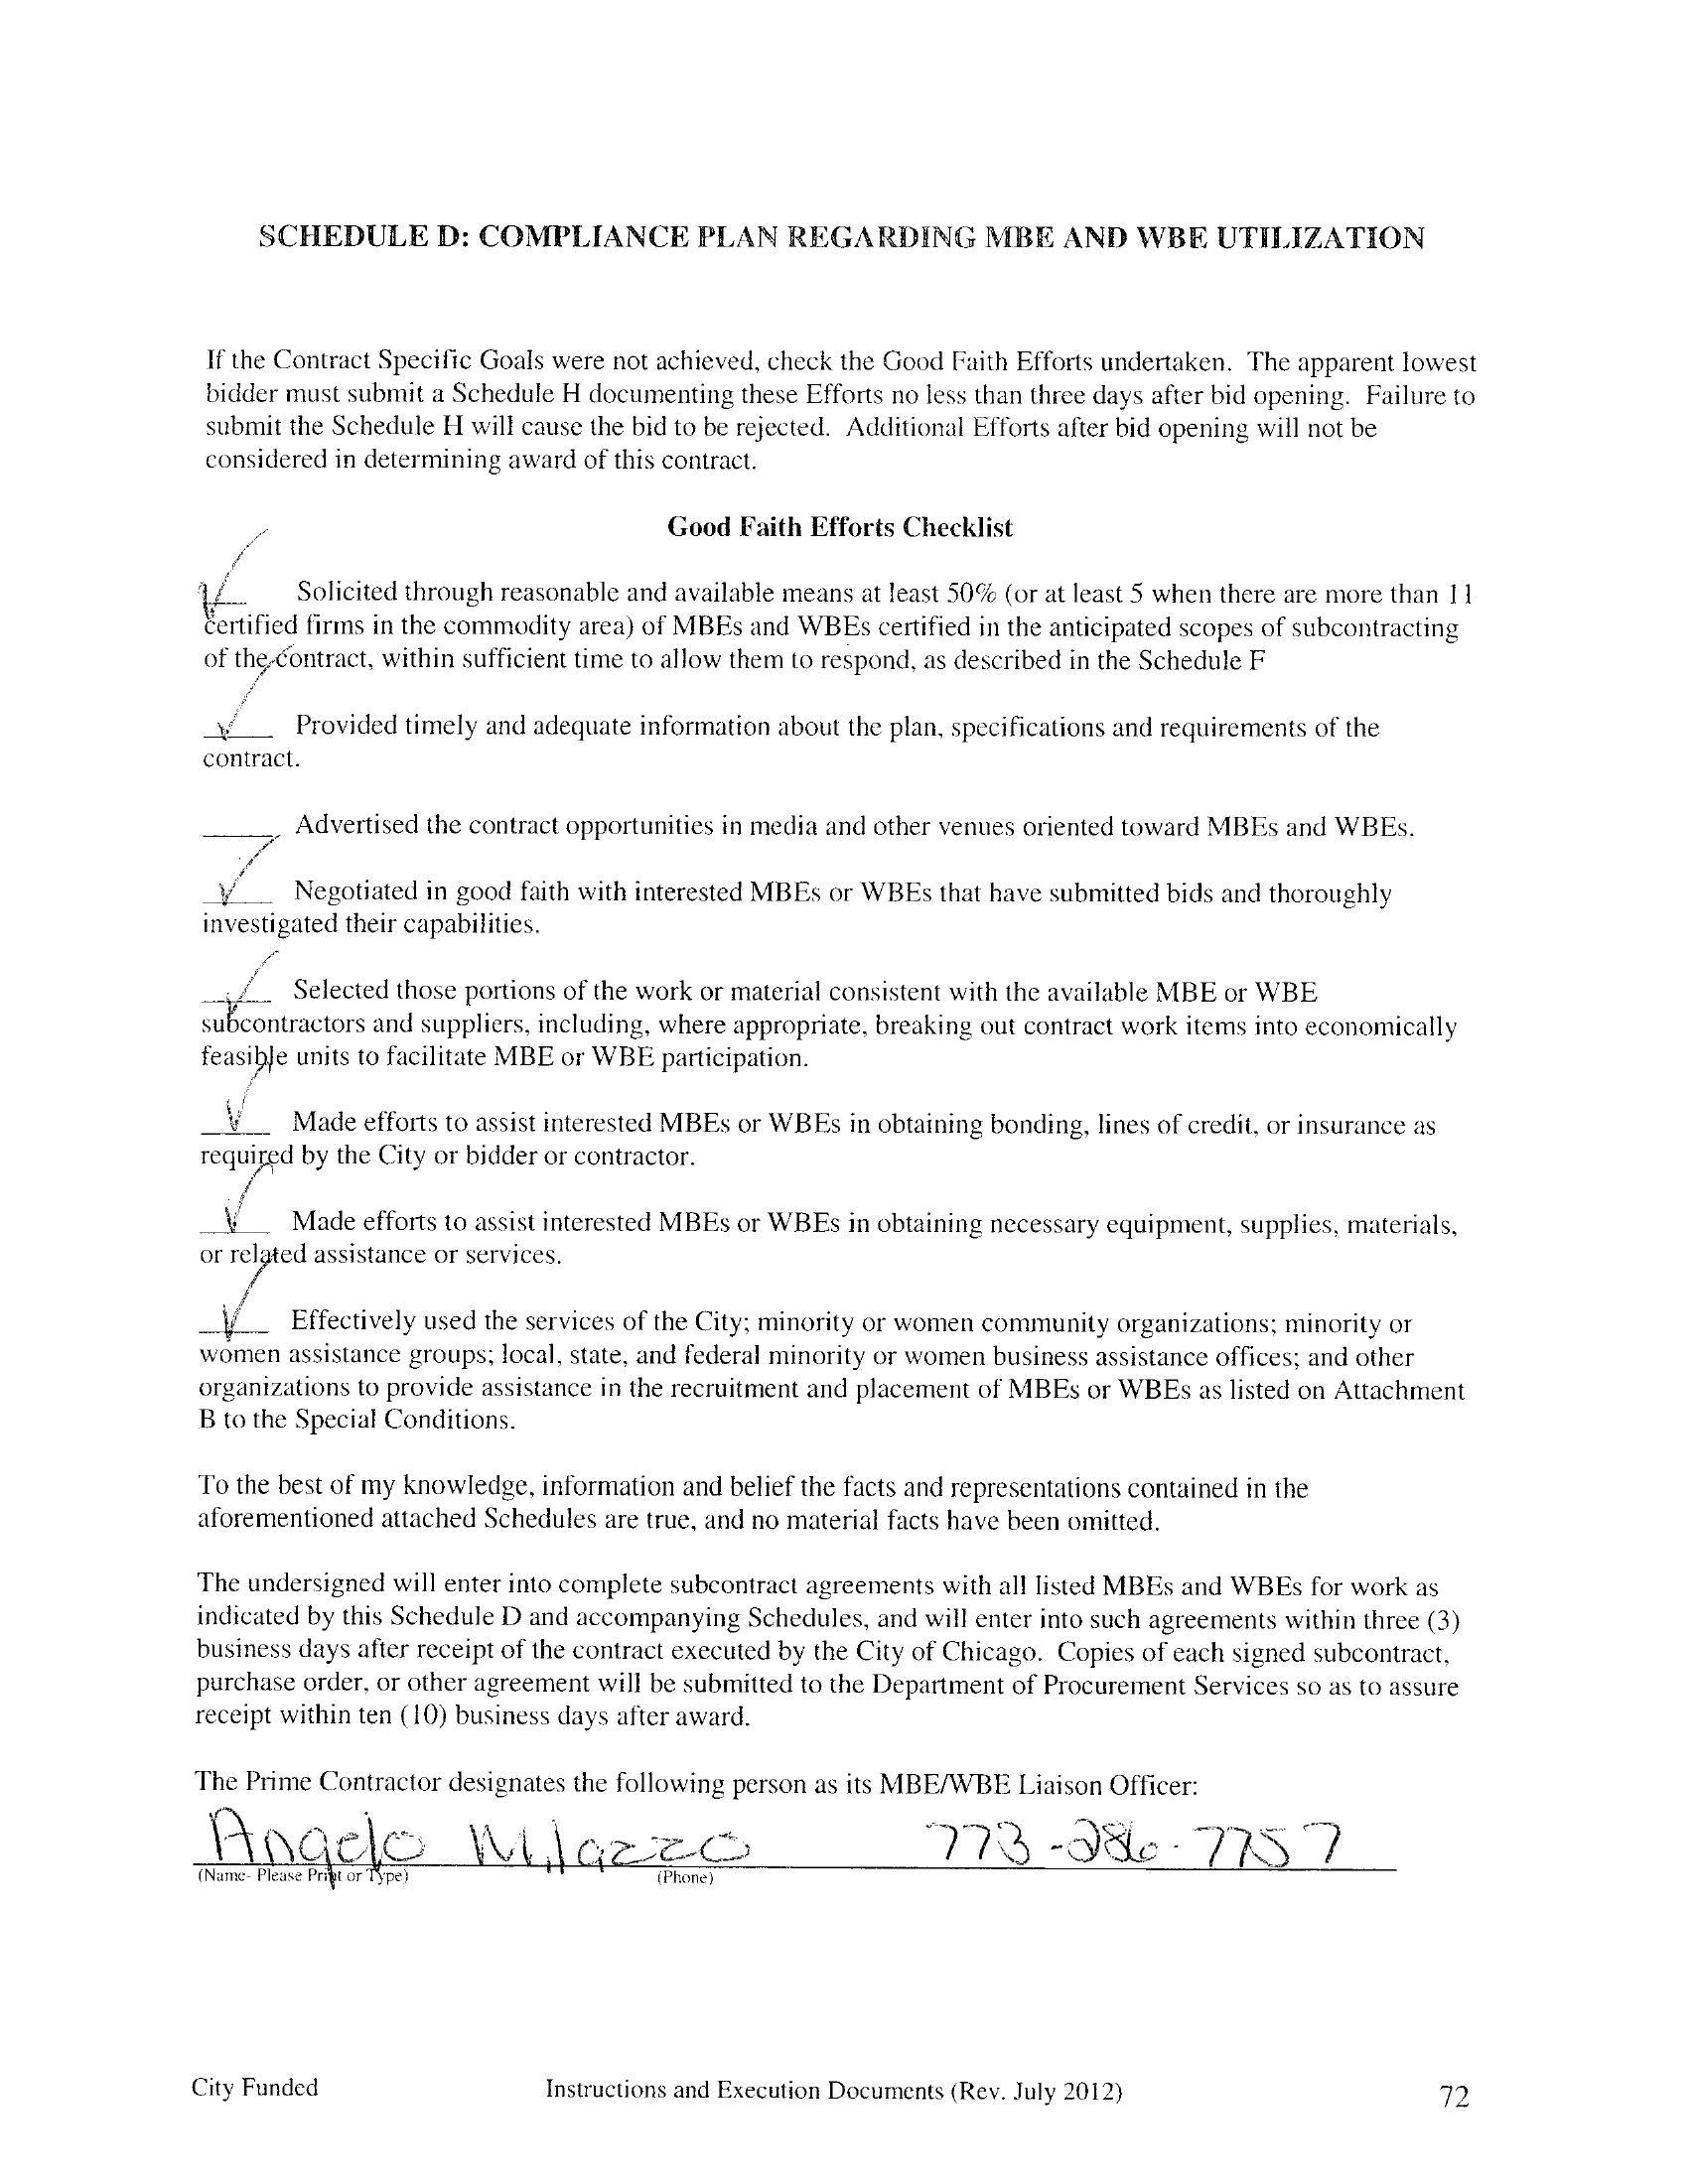 SCHEDULE D: COMPLIANCE PLAN REGARDING MBE AND WBE UTILIZATION
If the Contract Specific Goals were not achieved, check the Good Faith Efforts undertaken. The apparent lowest
bidder must submit a Schedule H documenting these Efforts no less than three days after bid opening. Failure to
submit the Schedule H will cause the bid to be rejected. Additional Efforts after bid opening will not be
considered in determining award of this contract.
Good Faith Efforts Checklist
Solicited through reasonable and available means at least 50% (or at least 5 when there are more than 11
certified firms in the commodity area) of MBEs and WBEs certified in the anticipated scopes of subcontracting
of the contract, within sufficient time to allow them to respond, as described in the Schedule F
Provided timely and adequate information about the plan, specifications and requirements of the
contract.
Advertised the contract opportunities in media and other venues oriented toward MBEs and WBEs.
Negotiated in good faith with interested MBEs or WBEs that have submitted bids and thoroughly
investigated their capabilities.
Selected those portions of the work or material consistent with the available MBE or WBE
subcontractors and suppliers, including, where appropriate, breaking out contract work items into economically
feasible units to facilitate MBE or WBE participation.
Made efforts to assist interested MBEs or WBEs in obtaining bonding, lines of credit, or insurance as
required by the City or bidder or contractor.
Made efforts to assist interested MBEs or WBEs in obtaining necessary equipment, supplies, materials,
or related assistance or services.
Effectively used the services of the City; minority or women community organizations; minority or
women assistance groups; local, state, and federal minority or women business assistance offices; and other
organizations to provide assistance in the recruitment and placement of MBEs or WBEs as listed on Attachment
B to the Special Conditions.
To the best of my knowledge, information and belief the facts and representations contained in the
aforementioned attached Schedules are true, and no material facts have been omitted.
The undersigned will enter into complete subcontract agreements with all listed MBEs and WBEs for work as
indicated by this Schedule D and accompanying Schedules, and will enter into such agreements within three (3)
business days after receipt of the contract executed by the City of Chicago. Copies of each signed subcontract,
purchase order, or other agreement will be submitted to the Department of Procurement Services so as to assure
receipt within ten (10) business days after award.
The Prime Contractor designates the following person as its MBE/WBE Liaison Officer:
Angelo Milazzo 773-286-7757
(Name- Please Print or Type) (Phone)
City Funded Instructions and Execution Documents (Rev. July 2012) 72